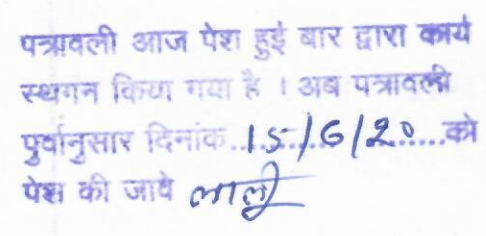 पत्रावली आज पेश हुई बार द्वारा कार्य
स्थगन किया गया है । अब पत्रावली
पुर्वानुसार दिनांक..15/6/20......को
पेश की जावे लालू